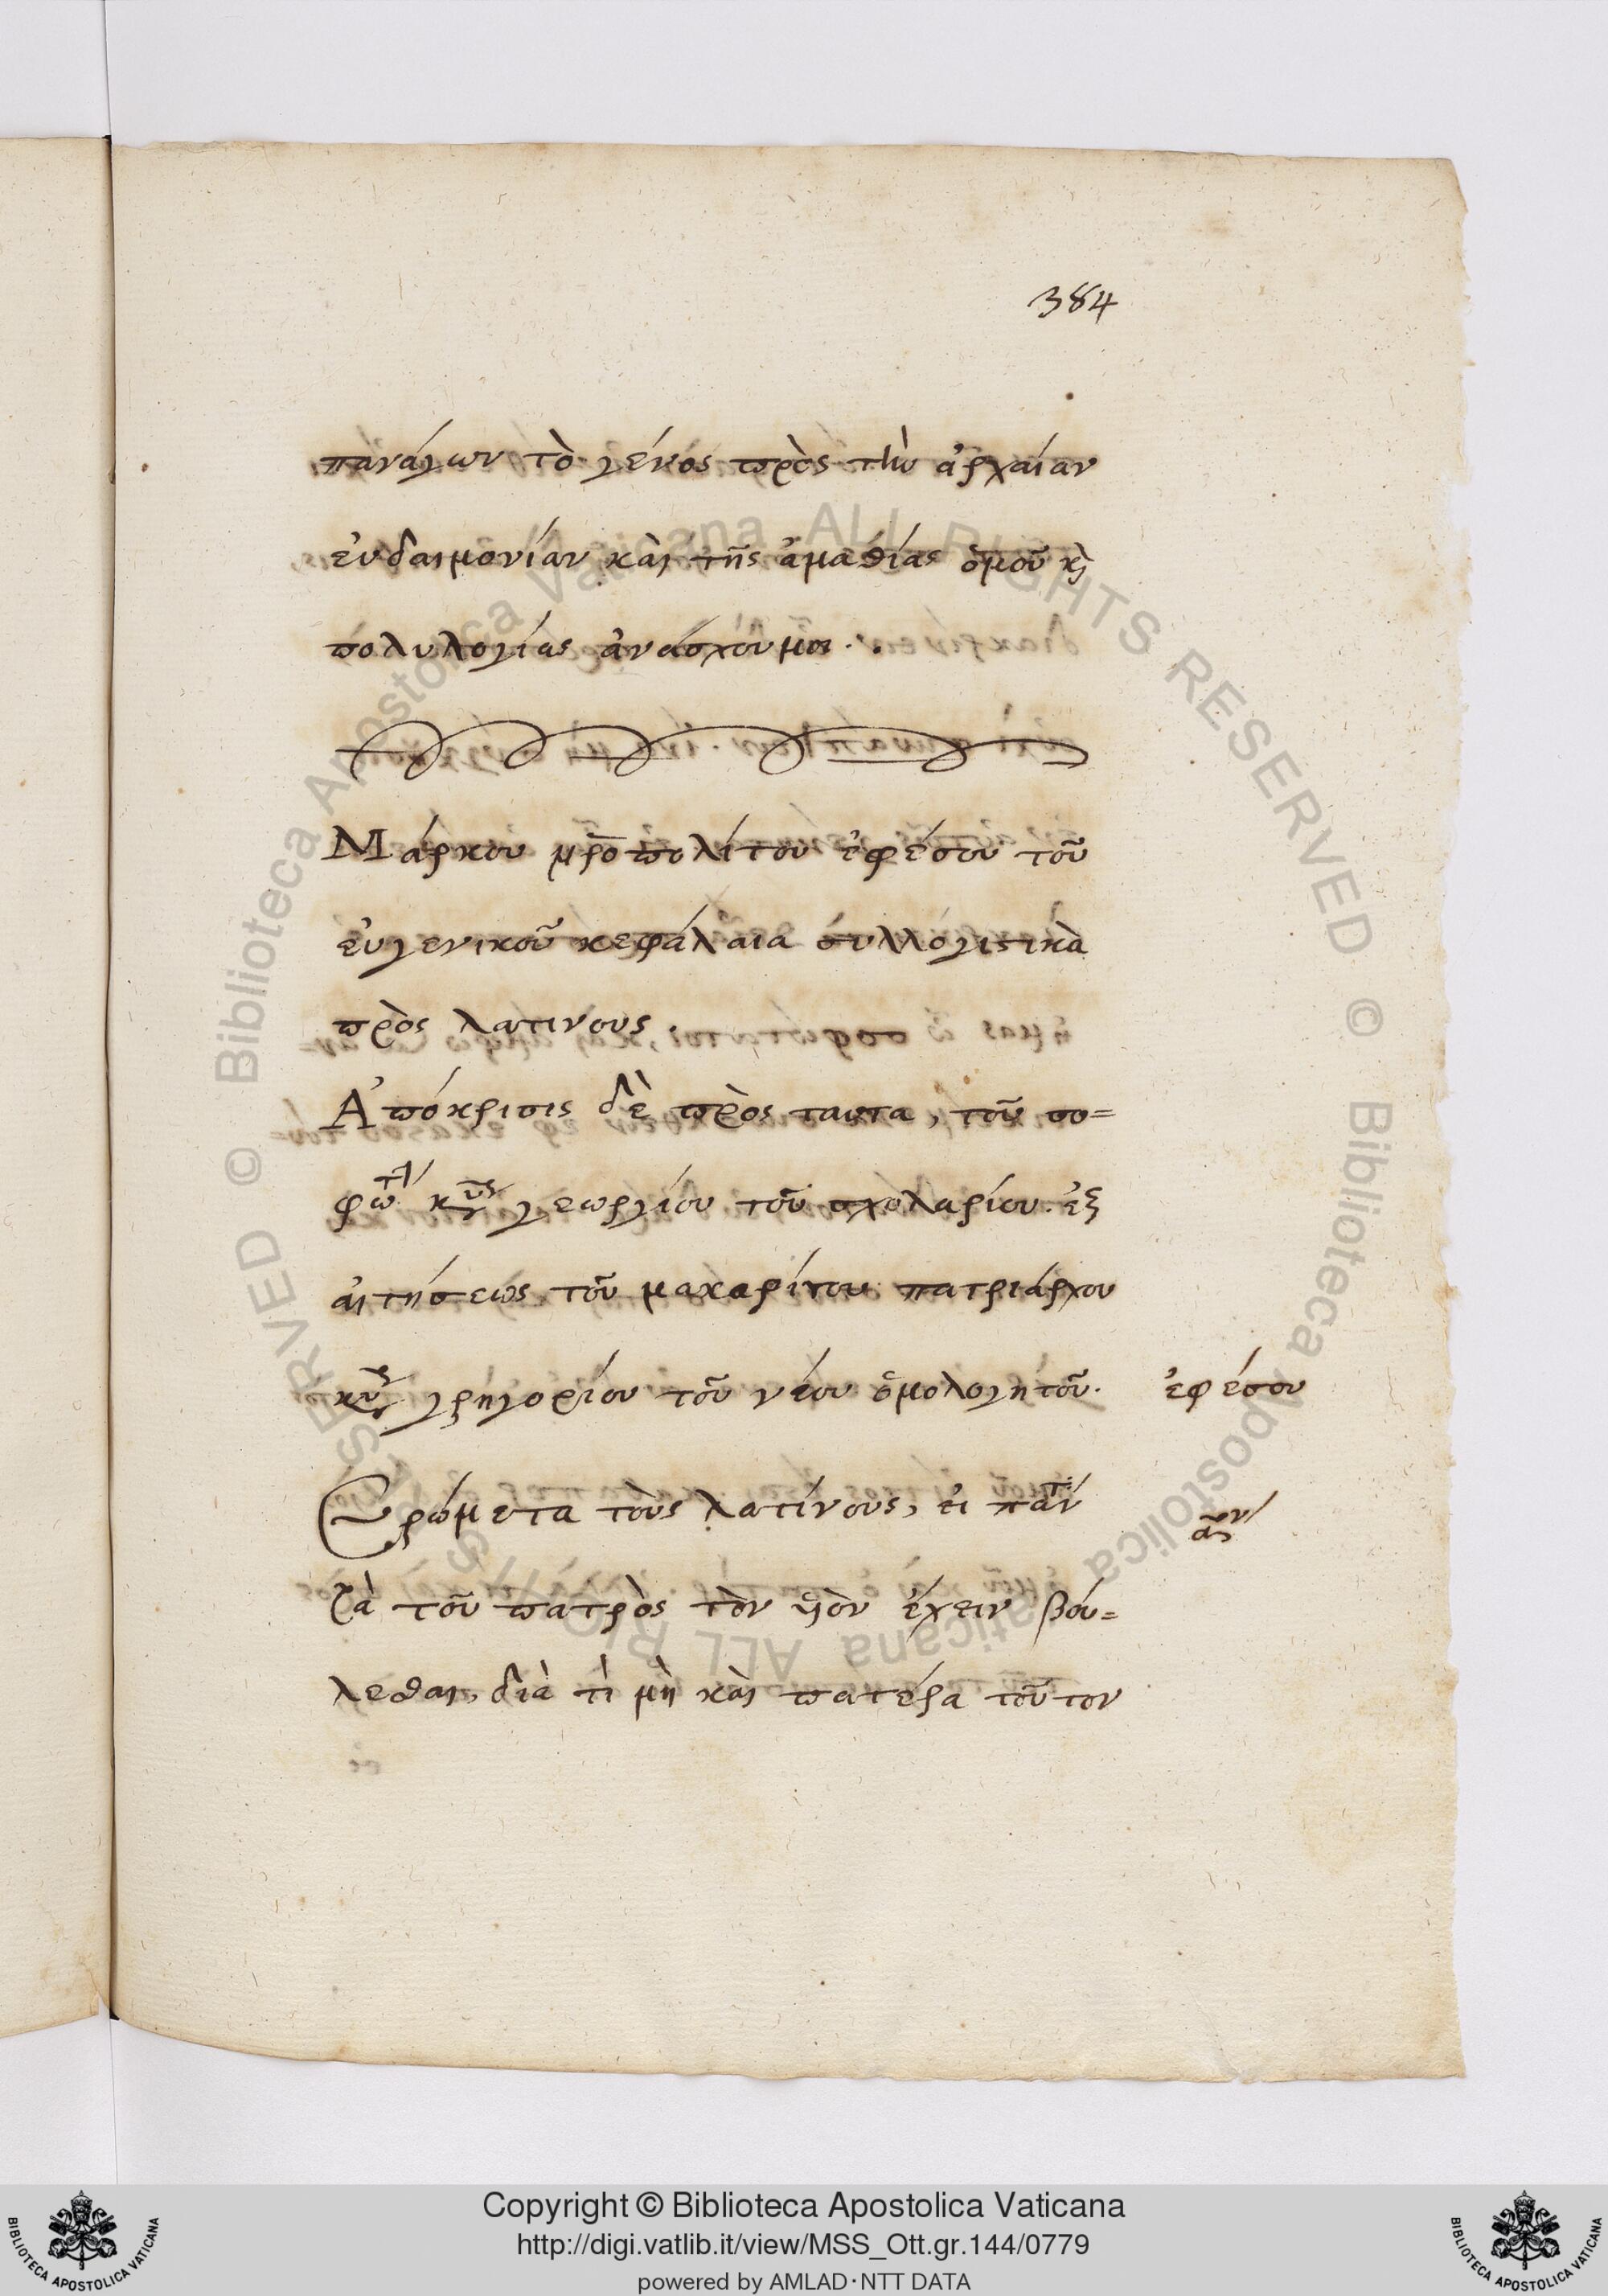 384
πανάγων τὸ γένος πρὸς τὴν ἀρχαίαν
ἐυδαιμονίαν καὶ τῆς ἀμαθίας ὁμοῦ κὶ
πολυλογίας ἀνάσχου μοι.
Μάρκου μροπολίτου ἐφέσου τοῦ
ἐυγενικοῦ κεφάλαια συλλογιστικὰ
πρὸς λατινους.
Ἀπόκρισις δὲ πρὸς ταυτα, τοῦ σο=
φωτ κυρ γεωργίου τοῦ σχολαρίου. ἐξ
ἀιτήσεως τοῦ μακαρίτου πατριάρχου
κυρ γρηγορίου τοῦ νέου ὁμολογητοῦ. ἐφέσου
Ερώμετα τοὺς λατίνους, ἐι παντ
τὰ τοῦ πατρὸς τὸν ὑὸν έχειν βού=
λεσθαι, διὰ τὶ μὴ καὶ πατέρα τοῦτον
Copyright © Biblioteca Apostolica Vaticana
http://digi.vatlib.it/view/MSS_Ott.gr.144/0779
powered by AMLAD·NTT DATA
BIBLIOTECA APOSTOLICA VATICANA
BIBLIOTECA APOSTOLICA VATICANA
© Biblioteca Apostolica Vaticana ALL RIGHTS RESERVED © Biblioteca Apostolica Vaticana ALL RIGHTS RESERVED